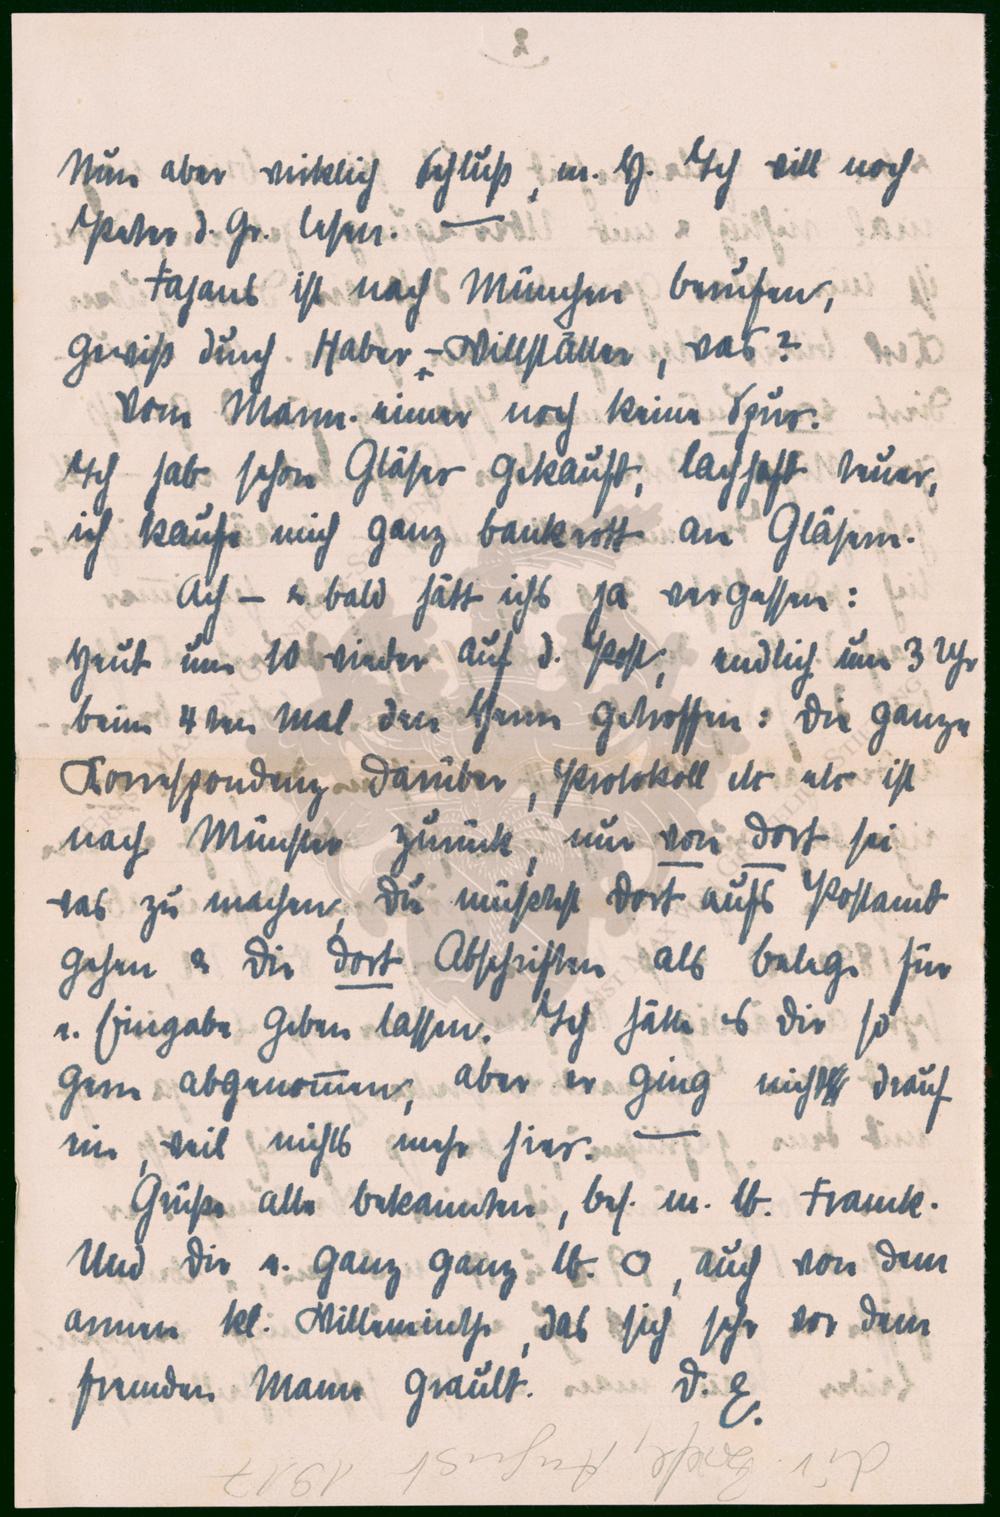 2
Nun aber wirklich Schluß, m. H. Ich will noch
Peter d. Gr. lesen. —
Fajans ist nach München berufen,
gewiß durch Haber - Willstätter, was?
Vom Mann. einer noch keine Spur.
Ich hab schon Gläser gekauft, lachhaft teuer,
ich kaufe mich ganz bankrott an Gläsern.
Ach — & bald hätt ichs ja vergessen:
Heut um 10 wieder auf d. Post, endlich um 3 Uhr
beim 4ten Mal den Herrn getroffen: die ganze
Korrespondenz darüber, Protokoll etc etc ist
nach Münster zurück, nur von dort sei
was zu machen, Du müßtest dort aufs Postamt
gehen & Dir dort Abschriften als belege für
e. Eingabe geben lassen. Ich hätte es Dir so
gern abgenommen, aber er ging nicht drauf
ein, weil nichts mehr hier. —
Grüße alle bekannten, bes. m. lb. Franck.
Und Dir e. ganz ganz lb. O, auch von dem
armen kl. Willeminthe, das sich sehr vor dem
fremden Mann grault. D. E.
August 1917